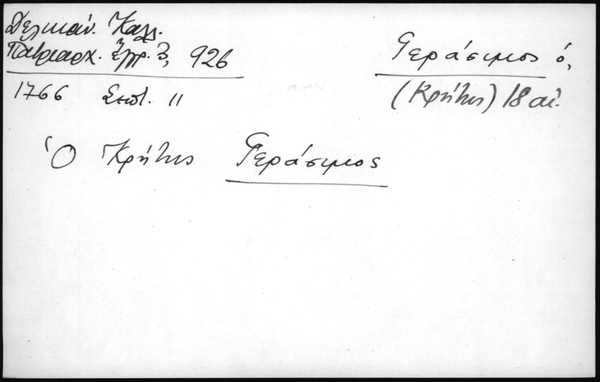 Δελικάν. Καλ.
Πατριαρχ. Ἔγγρ. 3, 926
Γεράσιμος ὁ,
(Κρήτης) 18 αἰ.
1766 Σεπτ. 11
Ὁ Κρήτης Γεράσιμος